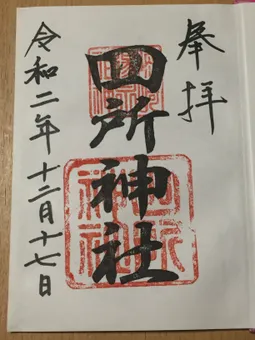 奉拝
田所神社
令和二年十二月十七日